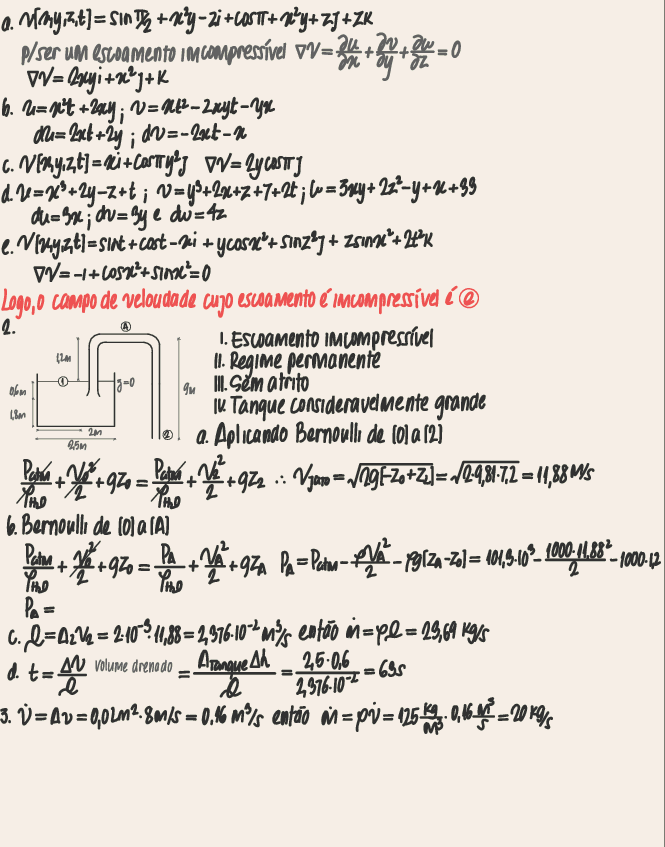 a. V[x,y,z,t] = sin π/2 + x²y - zi + cosπ + x²y + zj + zk
p/ser um escoamento imcompressível ∇V = ∂u/∂x + ∂v/∂y + ∂w/∂z = 0
∇V = 2xyi + x²j + k
b. u = x²t + 2xy ; v = xt² - 2xyt - yx
du = 2xt + 2y ; dv = -2xt - x
c. V[x,y,z,t] = xi + cosπy²j ∇V = 2ycosπj
d. u = x³ + 2y - z + t ; v = y³ + 2x + z + 7 + 2t ; w = 3xy + 2z² - y + x + 33
du = 3x ; dv = 3y e dw = 4z
e. V[x,y,z,t] = sint + cost - xi + ycosx² + sinz²j + zsinx² + 2t²k
∇V = -1 + cosx² + sinx² = 0
Logo, o campo de velocidade cujo escoamento é imcompressível é ⓔ
2.
1,2m
0,6m
1,8m
① z=0
2m
2,5m
Ⓐ
②
9m
I. Escoamento imcompressível
II. Regime permanente
III. Sem atrito
IV. Tanque consideravelmente grande
a. Aplicando Bernoulli de [0] a [2]
Patm/ρH₂O + V₀²/2 + gz₀ = Patm/ρH₂O + V₂²/2 + gz₂ ∴ Vjato = √2g[-z₀+z₂] = √2·9,81·7,2 = 11,88 m/s
b. Bernoulli de [0] a [A]
Patm/ρH₂O + V₀²/2 + gz₀ = PA/ρH₂O + VA²/2 + gzA PA = Patm - ρVA²/2 - ρg[zA-z₀] = 101,3·10³ - 1000·11,88²/2 - 1000·1,2
PA =
c. Q = A₂V₂ = 2·10⁻³·11,88 = 2,376·10⁻² m³/s então ṁ = ρQ = 23,69 kg/s
d. t = ΔV/Q volume drenado = ATanque Δh/Q = 2,5·0,6/2,376·10⁻² = 63s
3. V̇ = Av = 0,02m²·8m/s = 0,16 m³/s então ṁ = ρv̇ = 125 kg/m³ · 0,16 m³/s = 20 kg/s